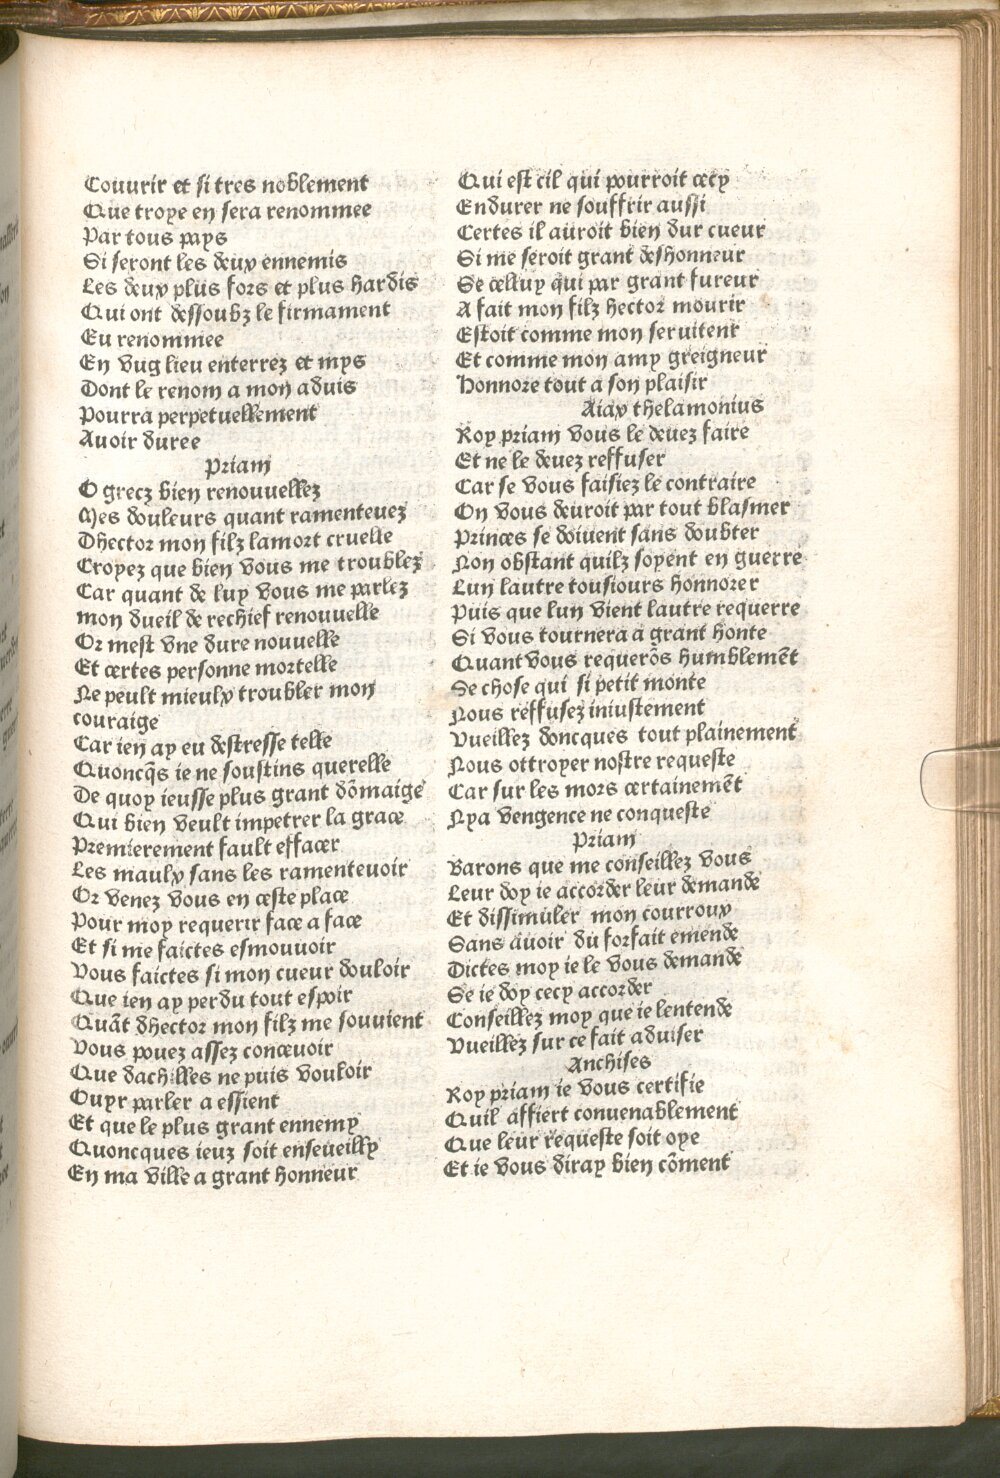 Couurir et si tres noblement
Que troye en sera renommee
Par tous pays
Si seront les deux ennemis
Les deux plus fors et plus hardis
Qui ont dessoubz le firmament
Eu renommee
En vug lieu enterrez et mys
Dont le renom a mon aduis
Pourra perpetuellement
Auoir duree
Priam
O grecz bien renouuellez
Mes douleurs quant ramenteuez
Dhector mon filz lamort cruelle
Croyez que bien vous me troublez
Car quant de luy vous me parlez
mon dueil de rechief renouuelle
Or mest vne dure nouuelle
Et certes personne mortelle
Ne peult mieulx troubler mon
couraige
Car ien ay eu destresse telle
Quoncq̃s ie ne soustins querelle
De quoy ieusse plus grant dõmaige
Qui bien veult impetrer la grace
Premierement fault effacer
Les maulx sans les ramenteuoir
Or venez vous en ceste place
Pour moy requerir face a face
Et si me faictes esmouuoir
Vous faictes si mon cueur douloir
Que ien ay perdu tout espoir
Quãt dhector mon filz me souuient
Vous pouez assez conceuoir
Que dachilles ne puis vouloir
Ouyr parler a essient
Et que le plus grant ennemy
Quoncques ieuz soit enseueilly
En ma ville a grant honneur
Qui est cil qui pourroit cecy
Endurer ne souffrir aussi
Certes il auroit bien dur cueur
Si me seroit grant deshonneur
Se celluy qui par grant fureur
A fait mon filz hector mourir
Estoit comme mon seruitenr
Et comme mon amy greigneur
Honnore tout a son plaisir
Aiax thelamonius
Roy priam vous le deuez faire
Et ne le deuez reffuser
Car se vous faisiez le contraire
On vous deuroit par tout blasmer
Princes se doiuent sans doubter
Non obstant quilz soyent en guerre
Lun lautre tousiours honnorer
Puis que lun vient lautre requerre
Si vous tournera a grant honte
Quant vous requerõs humblemẽt
Se chose qui si petit monte
Nous reffusez iniustement
Vueillez doncques tout plainement
Nous ottroyer nostre requeste
Car sur les mors certainemẽt
Nya vengence ne conqueste
Priam
Barons que me conseillez vous
Leur doy ie accorder leur demande
Et dissimuler mon courroux
Sans auoir du forfait emende
Dictes moy ie le vous demande
Se ie doy cecy accorder
Conseillez moy que ie lentende
Vueillez sur ce fait aduiser
Anchises
Roy priam ie vous certifie
Quil affiert conuenablement
Que leur requeste soit oye
Et ie vous diray bien cõment